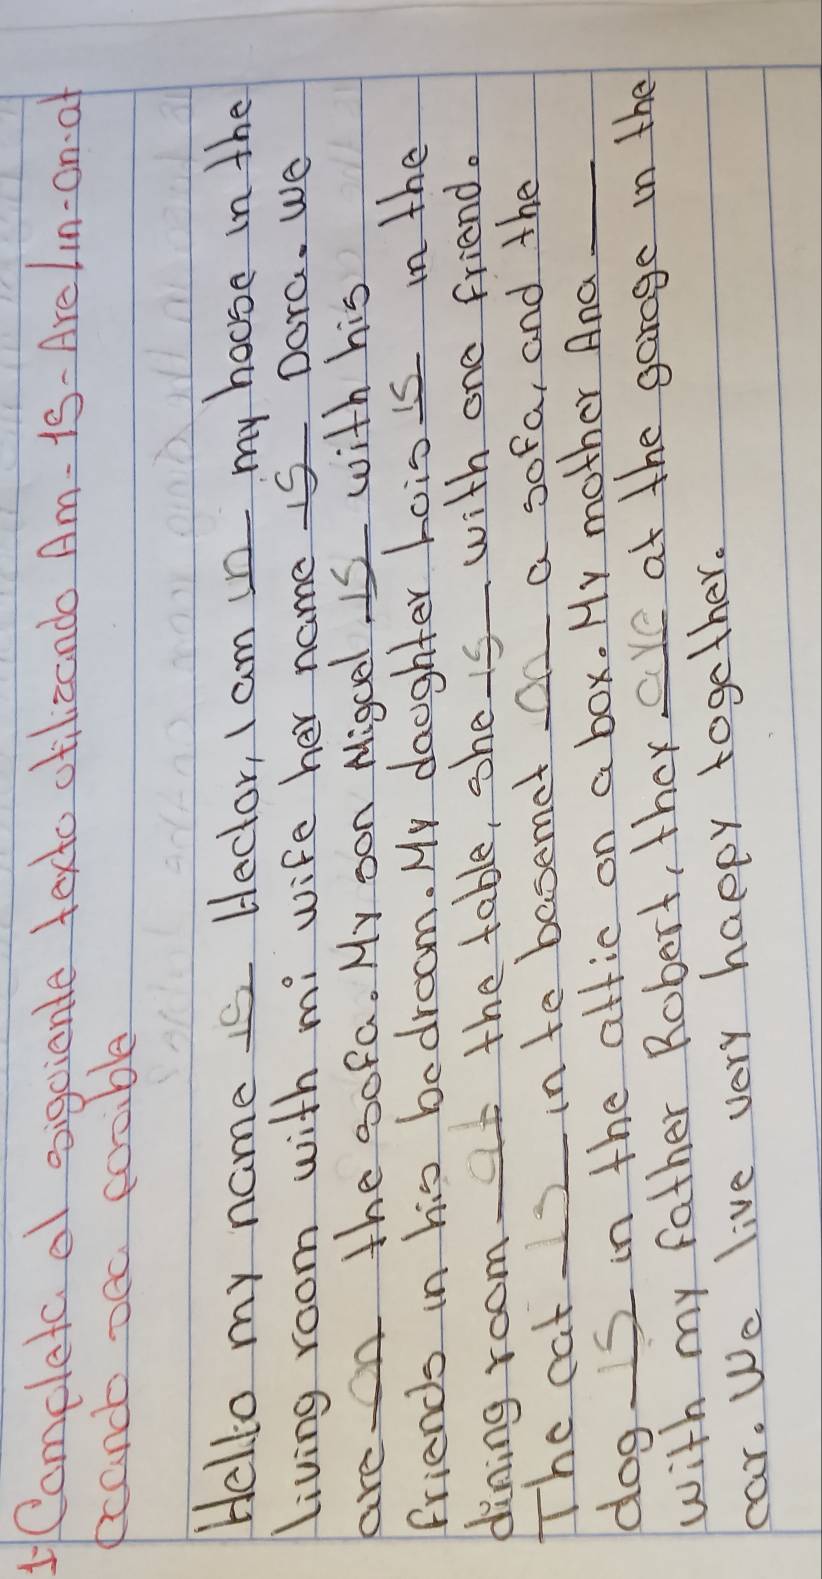 1- Completa el siguiente texto utilizando Am - Is - Are / in - on - at
cuando sea posible
Hello my name is Hector, I am in my house in the
living room with mi wife her name is Dora. We
are on the sofa. My son Miguel is with his
friends in his bedroom. My daughter Lois is in the
dining room at the table, she is with one friend.
The cat is in te basemet on a sofa, and the
dog is in the attic on a box. My mother Ana ____
with my father Robert, they are at the garage in the
car. We live very happy together.